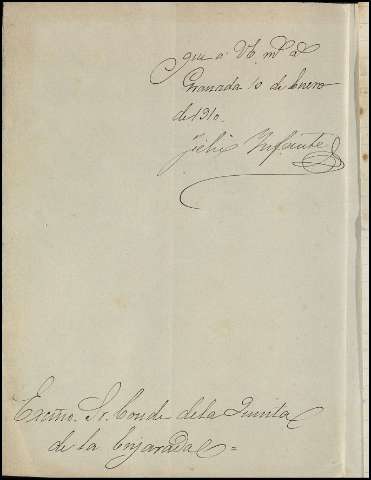 que á Vd. ms. as.
Granada 10 de Enero
de 1910.
Felix Infante
Excmo. Sr. Conde de la Quinta
de la Enjarada =